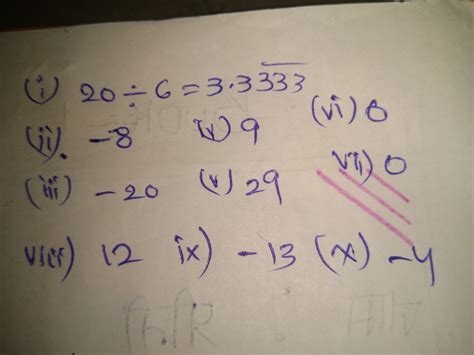 (i) 20 ÷ 6 = 3.3333
(ii) -8 (iv) 9 (vi) 0
(iii) -20 (v) 29 vii) 0
viii) 12 ix) -13 (x) -4